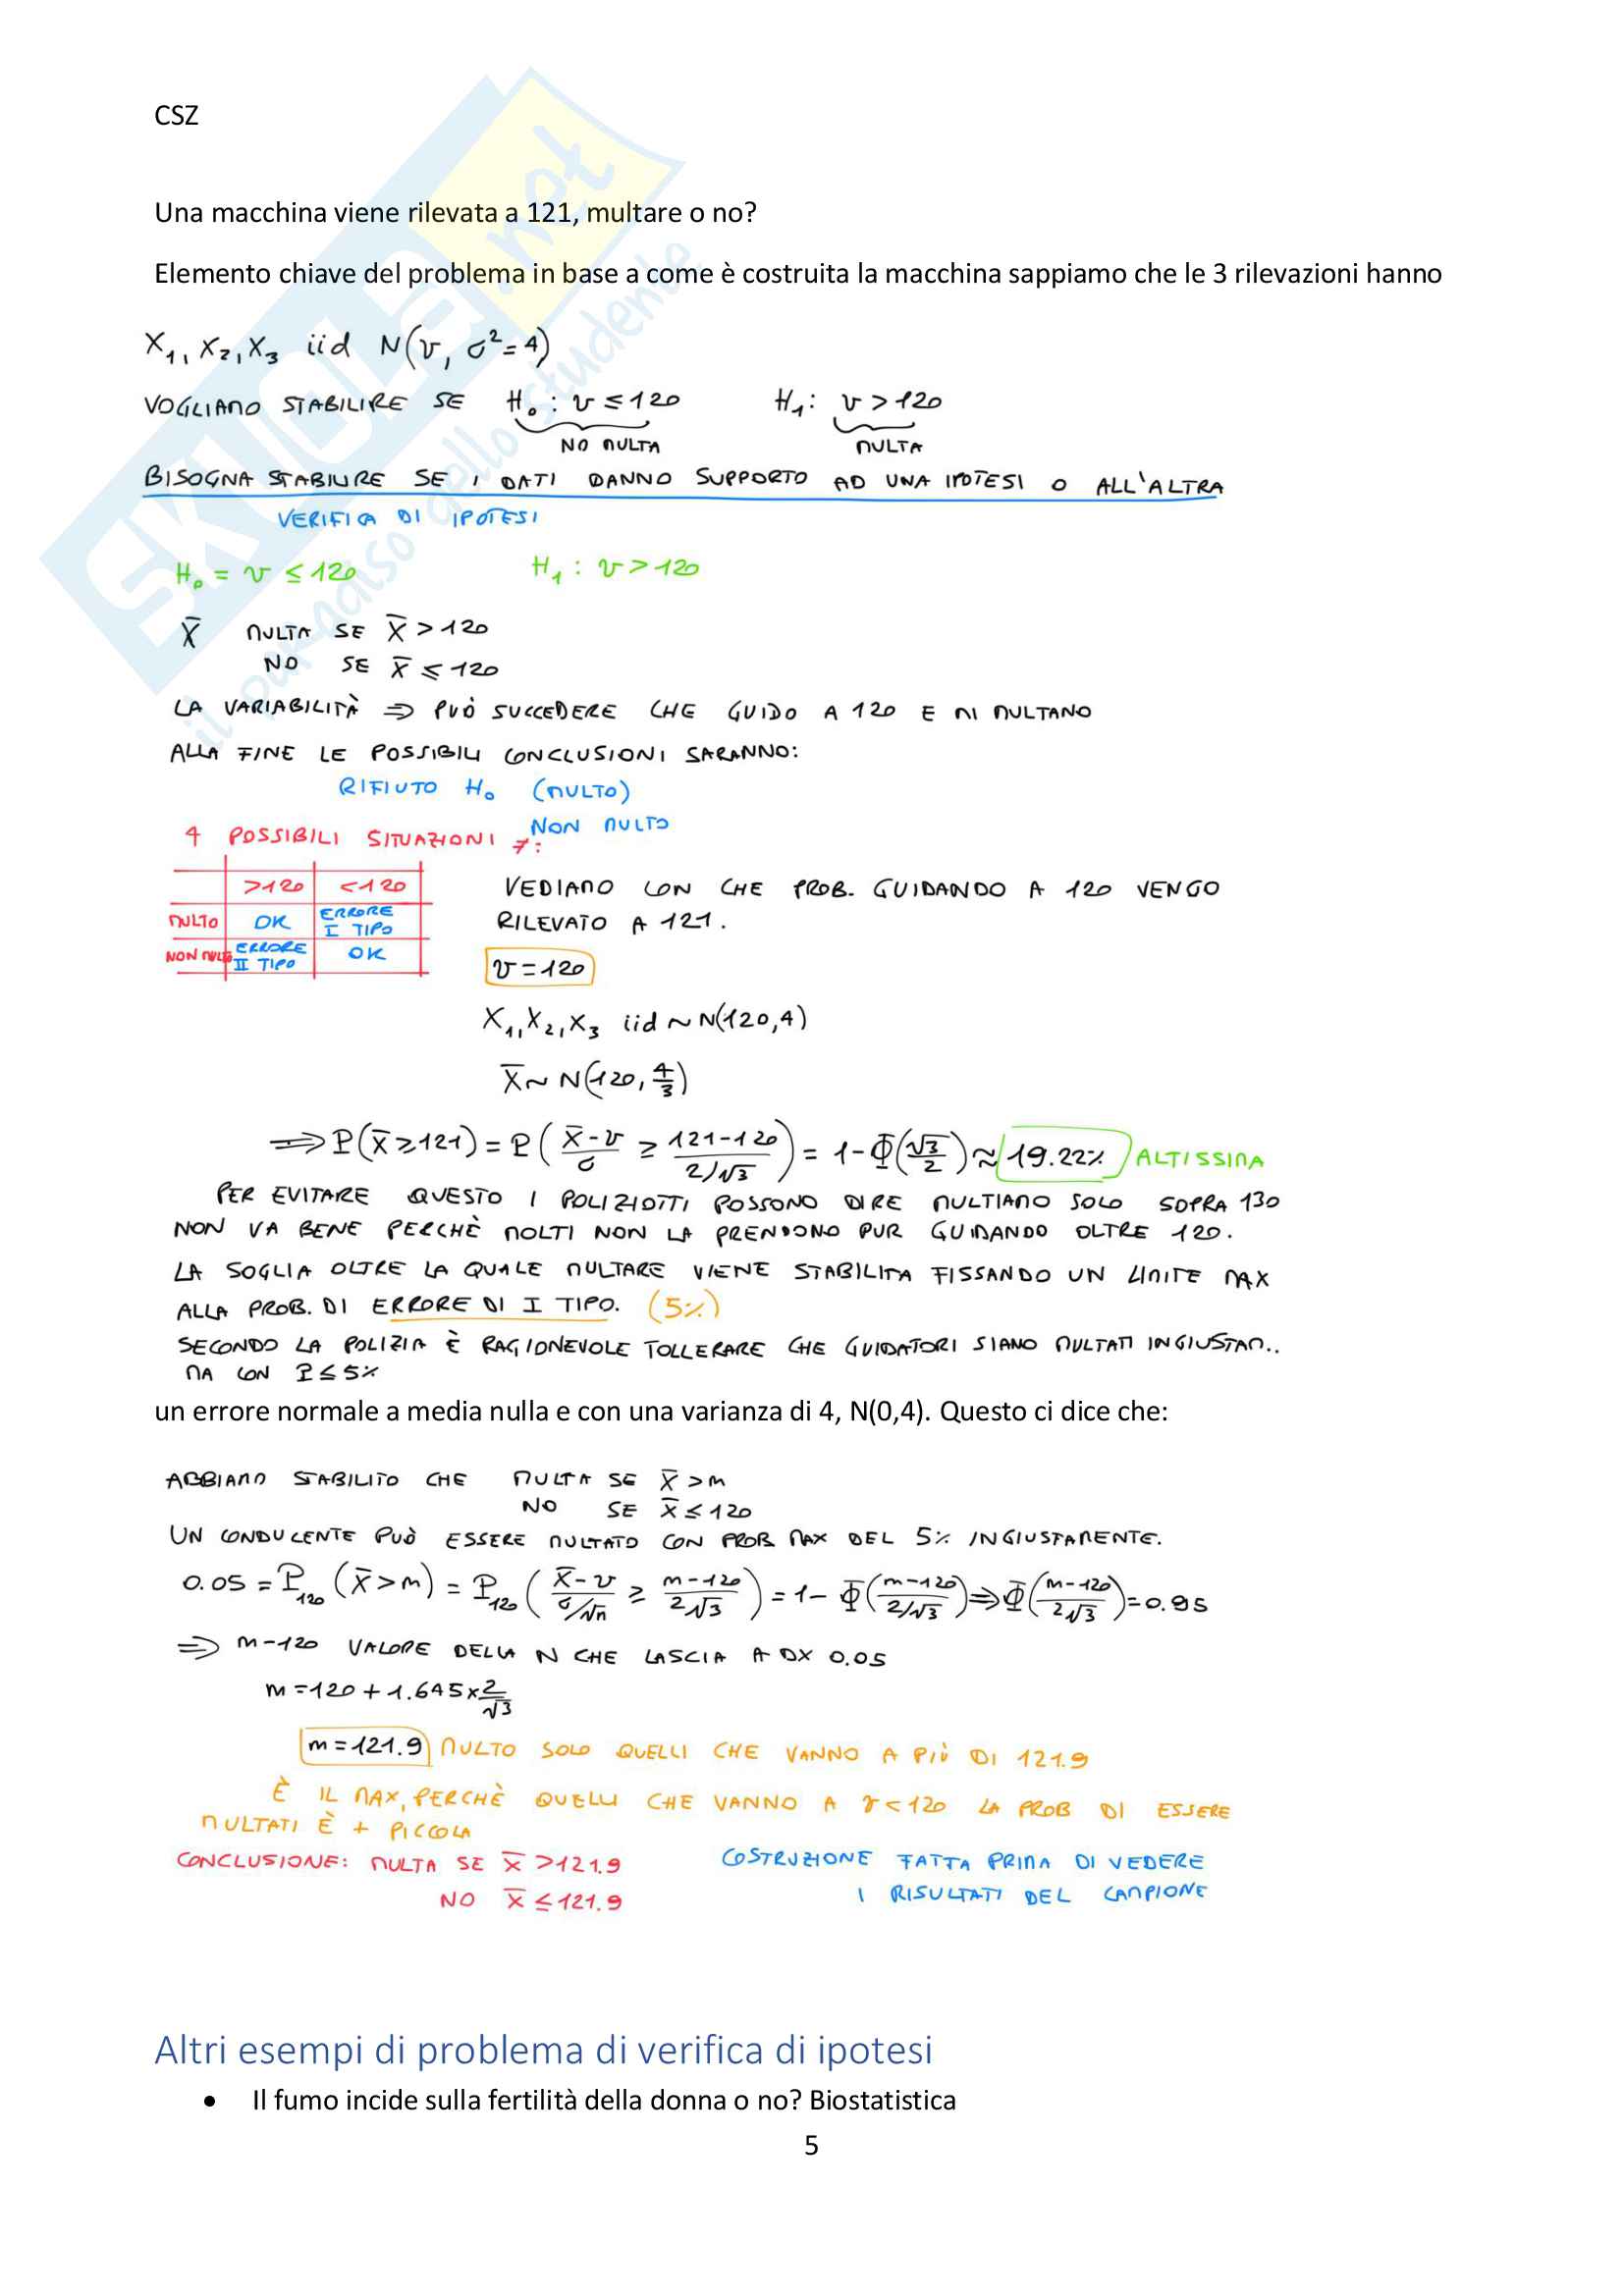 CSZ
Una macchina viene rilevata a 121, multare o no?
Elemento chiave del problema in base a come è costruita la macchina sappiamo che le 3 rilevazioni hanno
X₁, X₂, X₃ iid N(v, σ²=4)
VOGLIAMO STABILIRE SE H₀: v ≤ 120 H₁: v > 120
NO MULTA MULTA
BISOGNA STABILIRE SE I DATI DANNO SUPPORTO AD UNA IPOTESI O ALL'ALTRA
VERIFICA DI IPOTESI
H₀ = v ≤ 120 H₁: v > 120
X̄ MULTA SE X̄ > 120
NO SE X̄ ≤ 120
LA VARIABILITÀ ⇒ PUÒ SUCCEDERE CHE GUIDO A 120 E MI MULTANO
ALLA FINE LE POSSIBILI CONCLUSIONI SARANNO:
RIFIUTO H₀ (MULTO)
NON MULTO
4 POSSIBILI SITUAZIONI ≠:
>120 <120
MULTO OK ERRORE I TIPO
NON MULTO ERRORE II TIPO OK
VEDIAMO CON CHE PROB. GUIDANDO A 120 VENGO
RILEVATO A 121.
v = 120
X₁, X₂, X₃ iid ~ N(120,4)
X̄ ~ N(120, 4/3)
⇒ P(X̄ ≥ 121) = P((X̄-v)/σ ≥ (121-120)/(2/√3)) = 1-Φ(√3/2) ≈ 19.22% ALTISSIMA
PER EVITARE QUESTO I POLIZIOTTI POSSONO DIRE MULTIAMO SOLO SOPRA 130
NON VA BENE PERCHÈ MOLTI NON LA PRENDONO PUR GUIDANDO OLTRE 120.
LA SOGLIA OLTRE LA QUALE MULTARE VIENE STABILITA FISSANDO UN LIMITE MAX
ALLA PROB. DI ERRORE DI I TIPO. (5%)
SECONDO LA POLIZIA È RAGIONEVOLE TOLLERARE CHE GUIDATORI SIANO MULTATI INGIUSTAM..
MA CON P ≤ 5%
un errore normale a media nulla e con una varianza di 4, N(0,4). Questo ci dice che:
ABBIAMO STABILITO CHE MULTA SE X̄ > m
NO SE X̄ ≤ 120
UN CONDUCENTE PUÒ ESSERE MULTATO CON PROB MAX DEL 5% INGIUSTAMENTE.
0.05 = P₁₂₀(X̄ > m) = P₁₂₀((X̄-v)/(σ/√n) ≥ (m-120)/(2√3)) = 1-Φ((m-120)/(2/√3)) ⇒ Φ((m-120)/(2√3)) = 0.95
⇒ m-120 VALORE DELLA N CHE LASCIA A DX 0.05
m = 120 + 1.645 × 2/√3
m = 121.9 MULTO SOLO QUELLI CHE VANNO A PIÙ DI 121.9
È IL MAX, PERCHÈ QUELLI CHE VANNO A v < 120 LA PROB DI ESSERE
MULTATI È + PICCOLA
CONCLUSIONE: MULTA SE X̄ > 121.9
NO X̄ ≤ 121.9
COSTRUZIONE FATTA PRIMA DI VEDERE
I RISULTATI DEL CAMPIONE
Altri esempi di problema di verifica di ipotesi
• Il fumo incide sulla fertilità della donna o no? Biostatistica
5
SKUOLA.net
il paradiso dello studente